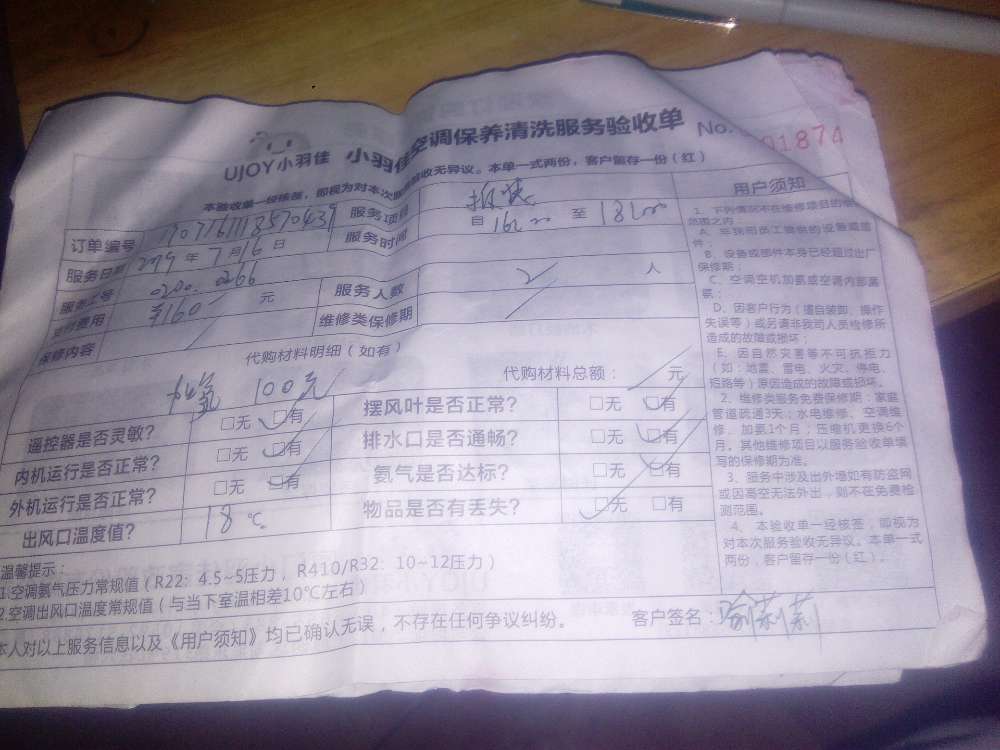 UJOY小羽佳 小羽佳空调保养清洗服务验收单 No. 91874
本验收单一经核签,即视为对本次服务验收无异议。本单一式两份,客户留存一份(红)
订单编号 服务项目
服务日期 2019年7月16日 服务时间 自16:00至18:00
服务工号 0200. 0266 服务人数 2人
支付费用 ¥160元 维修类保修期
保修内容
代购材料明细(如有)
加氢 100元 代购材料总额: 元
遥控器是否灵敏? □无 □有 摆风叶是否正常? □无 □有
内机运行是否正常? □无 □有 排水口是否通畅? □无 □有
外机运行是否正常? □无 □有 氨气是否达标? □无 □有
出风口温度值? 18℃ 物品是否有丢失? □无 □有
温馨提示:
1.空调氨气压力常规值(R22:4.5~5压力,R410/R32:10~12压力)
2.空调出风口温度常规值(与当下室温相差10℃左右)
本人对以上服务信息以及《用户须知》均已确认无误,不存在任何争议纠纷。 客户签名:
用户须知
1、下列情况不在维修项目的保修
范围之内:
A、非我司员工提供的设备或部
件;
B、设备或部件本身已经超过出厂
保修期;
C、空调空机加氨或空调内部漏
氨;
D、因客户行为(擅自装卸、操作
失误等)或另请非我司人员维修所
造成的故障或损坏;
E、因自然灾害等不可抗拒力
(如:地震、雷电、火灾、停电、
短路等)原因造成的故障或损坏。
2、维修类服务免费保修期:家庭
管道疏通3天;水电维修、空调维
修、加氨1个月;压缩机更换6个
月。其他维修项目以服务验收单填
写的保修期为准。
3、服务中涉及出外墙如有防盗网
或因高空无法外出,则不在免费检
测范围。
4、本验收单一经核签,即视为
对本次服务验收无异议。本单一式
两份,客户留存一份(红)。